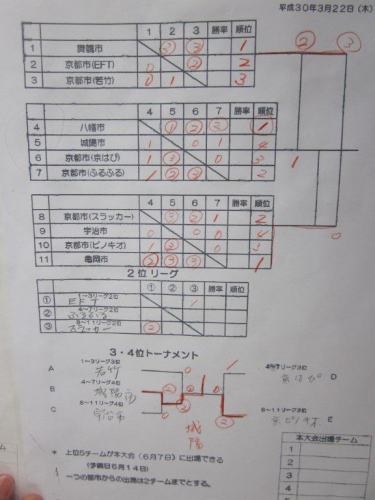 平成30年3月22日(木)
1 2 3 勝率 順位
1 舞鶴市 ② ③ 1
2 京都市(EFT) 0 ② 2
3 京都市(若竹) 0 1 3
② ③
4 5 6 7 勝率 順位
4 八幡市 ① ② ② 1
5 城陽市 1 0 1 4
6 京都市(京はび) 1 ③ 0 3
7 京都市(ふるふる) 1 ② ③ 2
1
8 京都市(スラッカー) ③ ② 1 2
9 宇治市 0 0 0 4
10 京都市(ピノキオ) 1 ② 0 3
11 亀岡市 ② ③ ③ 1
0
2位リーグ
① ② ③ 勝率 順位
① 1~3リーグ2位 EFT 1
② 4~7リーグ2位 ふるふる
③ 8~11リーグ2位 スラッカー ②
3・4位トーナメント
A 1~3リーグ3位 若竹 0
4~7リーグ3位 京はび D
B 4~7リーグ4位 城陽市
C 8~11リーグ4位 宇治市 0
8~11リーグ3位 京ピノキオ E
城陽
* 上位5チームが本大会(6月7日)に出場できる
(予備日6月14日)
一つの都市からの出場は2チームまでとする。
本大会出場チーム
1
2
3
4